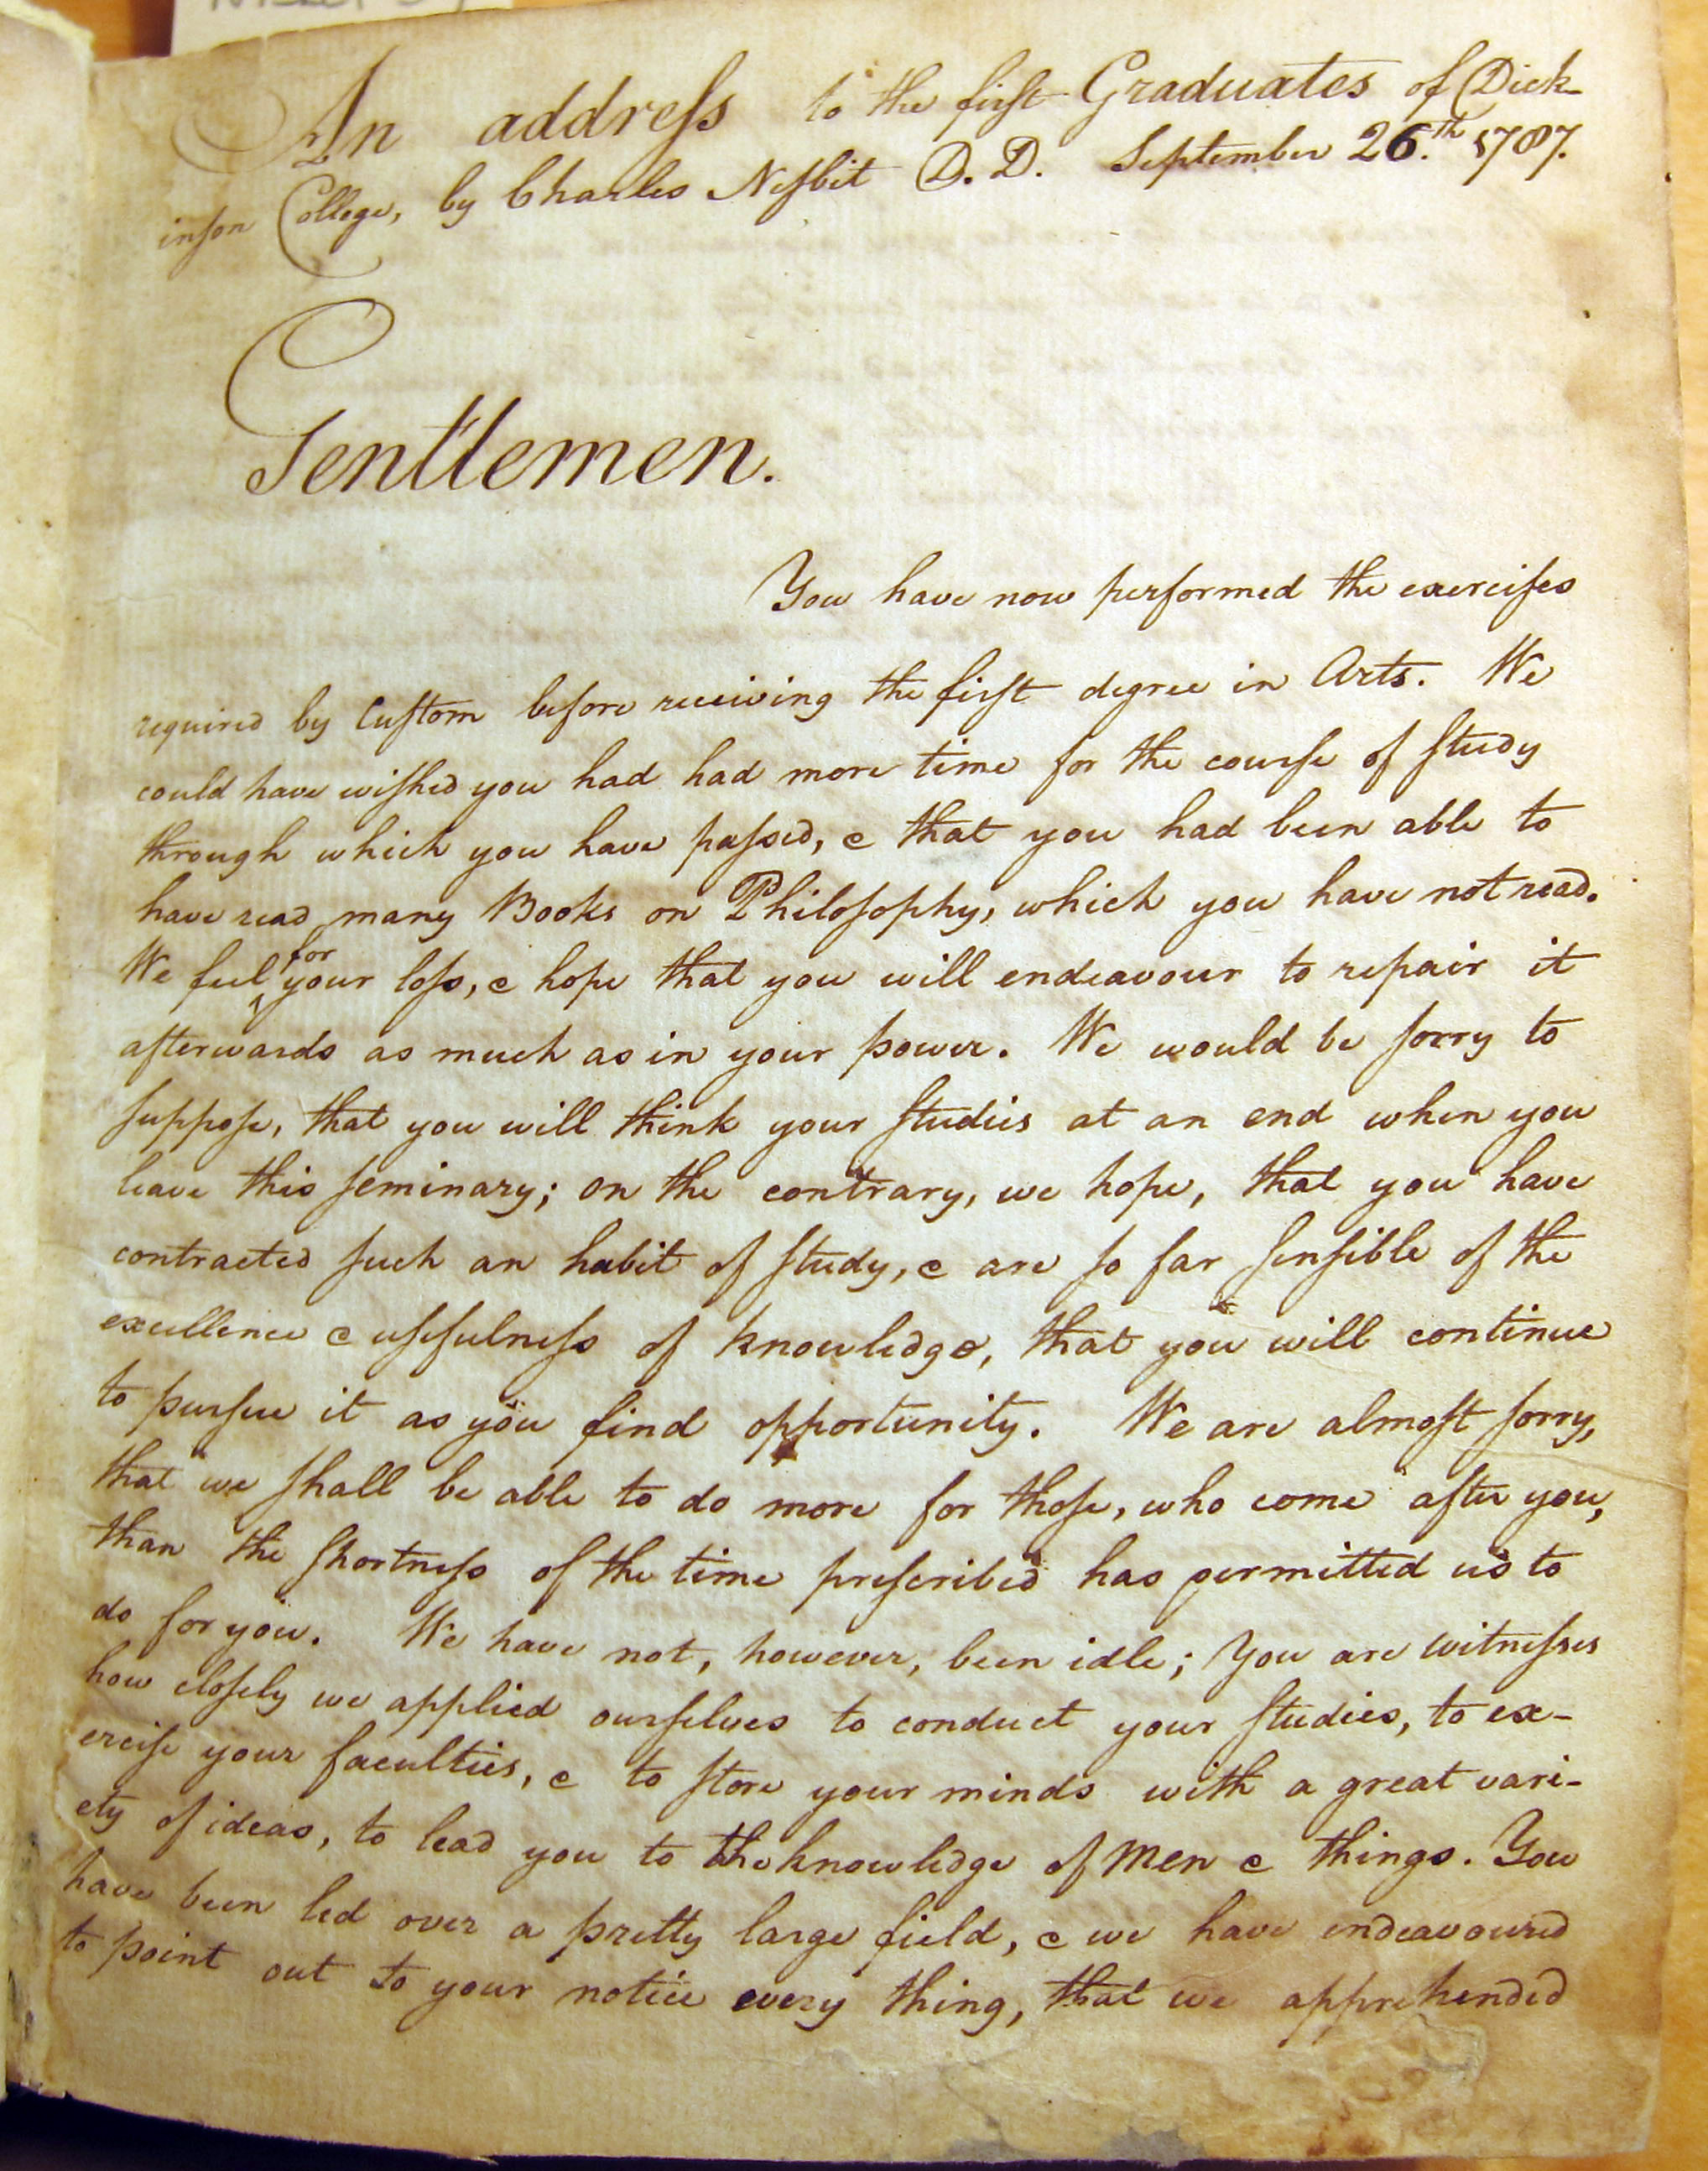 An addreſs to the firſt Graduates of Dick-
inſon College, by Charles Neſbit D. D. September 26.th 1787.
Gentlemen.
You have now performed the exerciſes
required by Cuſtom before receiving the firſt degree in Arts. We
could have wiſhed you had had more time for the courſe of ſtudy
through which you have paſsed, & that you had been able to
have read many Books on Philoſophy, which you have not read.
We feel for your loſs, & hope that you will endeavour to repair it
afterwards as much as in your power. We would be ſorry to
ſuppoſe, that you will think your ſtudies at an end when you
leave this ſeminary; on the contrary, we hope, that you have
contracted ſuch an habit of ſtudy, & are ſo far ſenſible of the
excellence & uſefulneſs of knowledge, that you will continue
to purſue it as you find opportunity. We are almoſt ſorry,
that we ſhall be able to do more for thoſe, who come after you,
than the ſhortneſs of the time preſcribed has permitted us to
do for you. We have not, however, been idle; you are witneſses
how cloſely we applied ourſelves to conduct your ſtudies, to ex-
erciſe your faculties, & to ſtore your minds with a great vari-
ety of ideas, to lead you to the knowledge of Men & things. You
have been led over a pretty large field, & we have endeavoured
to point out to your notice every thing, that we apprehended